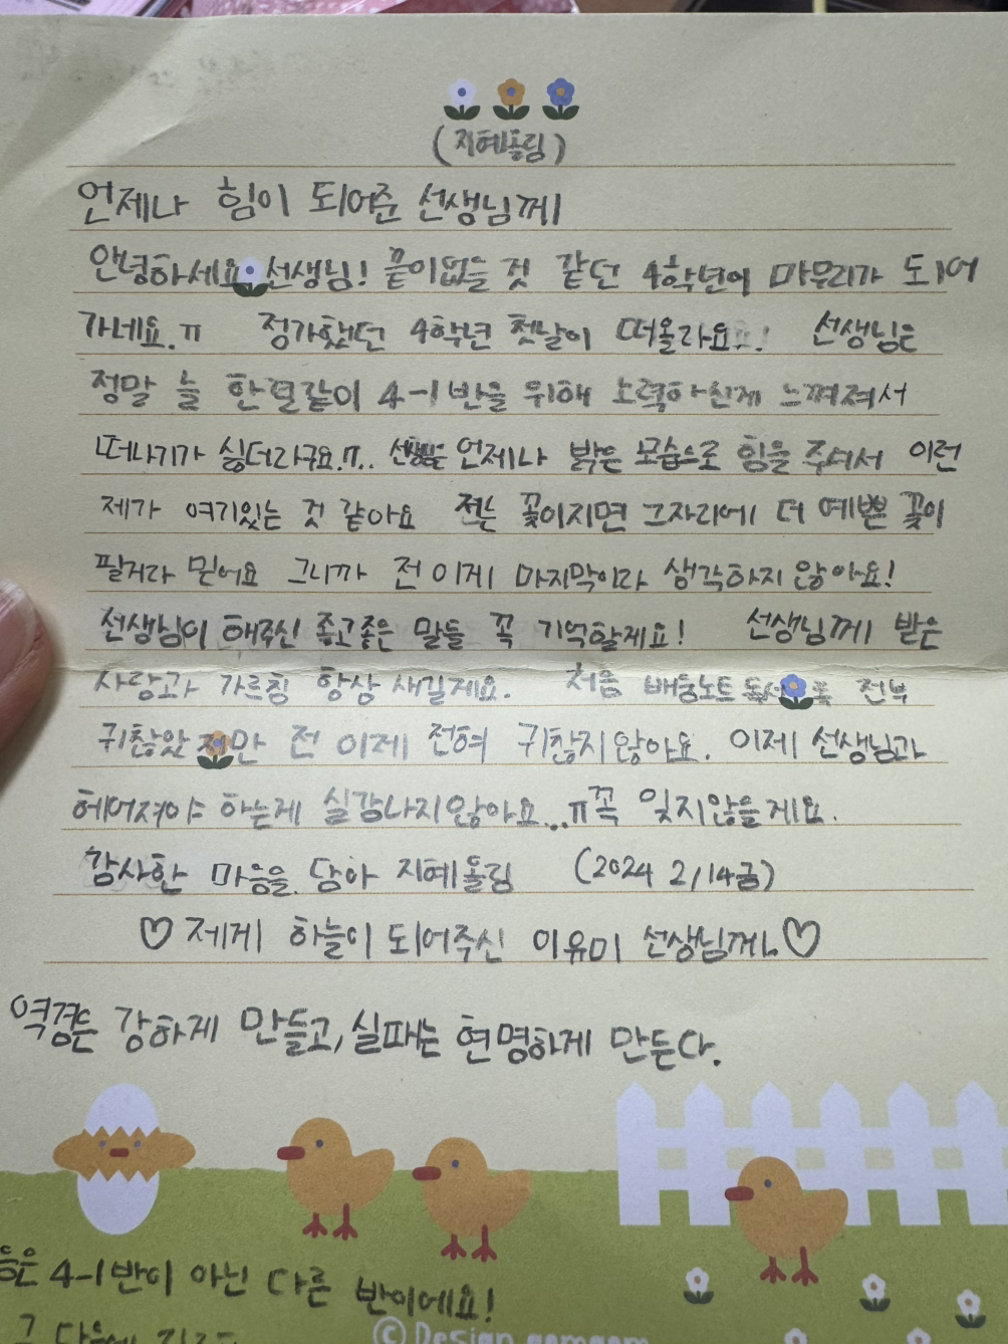 (지혜올림)
언제나 힘이 되어준 선생님께
안녕하세요 선생님! 끝이없을 것 같던 4학년이 마무리가 되어
가네요.ㅠ 정가했던 4학년 첫날이 떠올라요! 선생님은
정말 늘 한결같이 4-1반을 위해 노력하신게 느껴져서
떠나기가 싫더라구요.ㅠ.. 선생님은 언제나 밝은 모습으로 힘을 주셔서 이런
제가 여기있는 것 같아요 저는 꽃이지면 그자리에 더 예쁜 꽃이
필거라 믿어요 그니까 전 이게 마지막이라 생각하지 않아요!
선생님이 해주신 좋고좋은 말들 꼭 기억할게요! 선생님께 받은
사랑과 가르침 항상 새길게요. 처음 배움노트 전부
귀찮았지만 전 이제 전혀 귀찮지않아요. 이제 선생님과
헤어져야 하는게 실감나지않아요...ㅠ꼭 잊지않을게요.
감사한 마음을 담아 지혜올림 (2024 2/14금)
♡제게 하늘이 되어주신 이유미 선생님께.♡
역경은 강하게 만들고, 실패는 현명하게 만든다.
4-1반이 아닌 다른 반이에요!
그 다음에
© Design gomgom